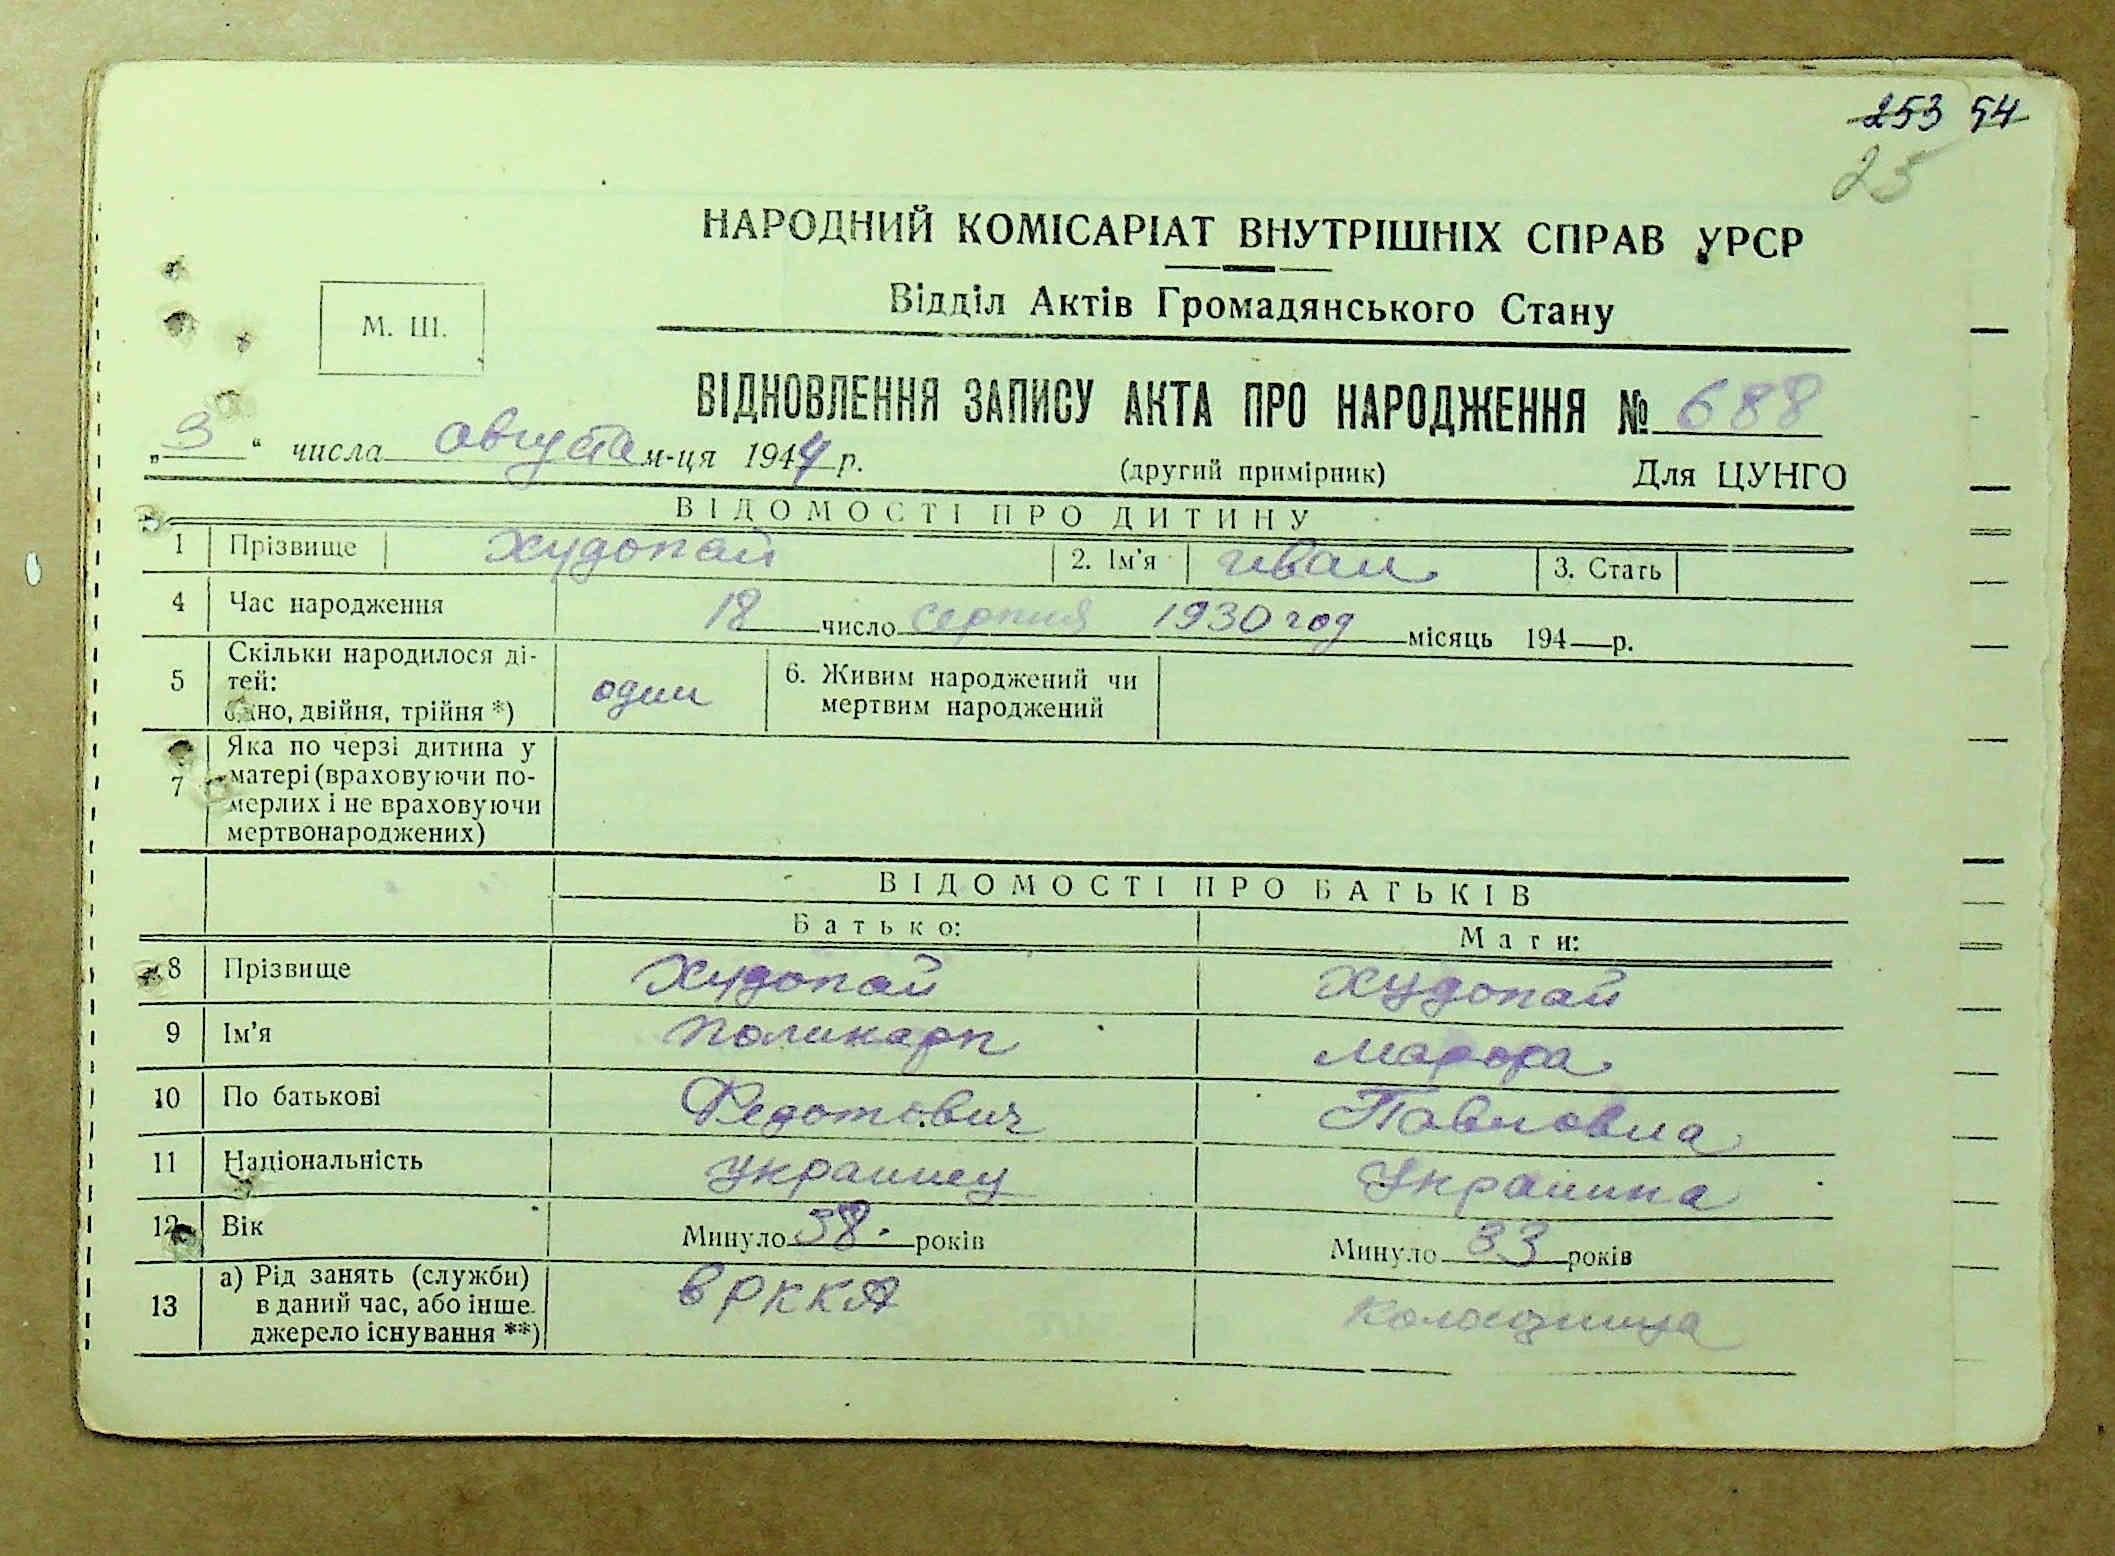 253 54
25
НАРОДНИЙ КОМІСАРІАТ ВНУТРІШНІХ СПРАВ УРСР
М. Ш.
Відділ Актів Громадянського Стану
ВІДНОВЛЕННЯ ЗАПИСУ АКТА ПРО НАРОДЖЕННЯ № 688
„3“ числа августа м-ця 1944 р. (другий примірник) Для ЦУНГО
ВІДОМОСТІ ПРО ДИТИНУ
1 Прізвище Худопай 2. Ім'я Иван 3. Стать
4 Час народження 18 число серпня 1930 год місяць 194 р.
5 Скільки народилося ді-
тей:
одно, двійня, трійня *) один
6. Живим народжений чи
мертвим народжений
7 Яка по черзі дитина у
матері (враховуючи по-
мерлих і не враховуючи
мертвонароджених)
ВІДОМОСТІ ПРО БАТЬКІВ
Батько: Мати:
8 Прізвище Худопай Худопай
9 Ім'я Поликарп
10 По батькові Федотович Павловна
11 Національність украинец Украинка
12 Вік Минуло 38 років Минуло 33 років
13 а) Рід занять (служби)
в даний час, або інше
джерело існування **) в РККА Колгозница